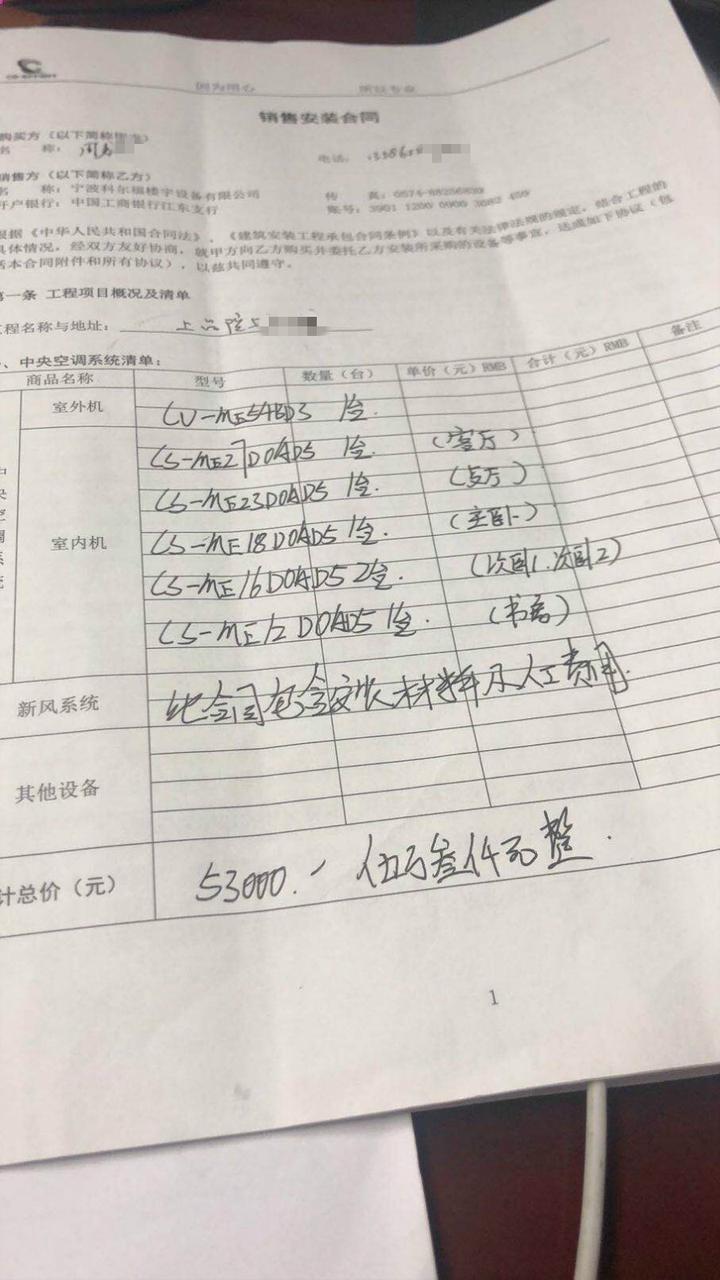 因为用心 所以专业
销售安装合同
购买方（以下简称甲方）
名 称： 电话：
销售方（以下简称乙方）
名 称：宁波科尔福楼宇设备有限公司 传 真：0574-88256839
开户银行：中国工商银行江东支行 账号：3901 1200 0900 3082 459
根据《中华人民共和国合同法》，《建筑安装工程承包合同条例》以及有关法律法规的规定，结合工程的
具体情况，经双方友好协商，就甲方向乙方购买并委托乙方安装所采购的设备等事宜，达成如下协议（包
括本合同附件和所有协议），以兹共同遵守。
第一条 工程项目概况及清单
工程名称与地址： 上品院
、中央空调系统清单：
商品名称 型号 数量（台） 单价（元）RMB 合计（元）RMB 备注
室外机 CU-ME54BD3 1台.
室内机
CS-ME27D0AD5 1台. （客厅）
CS-ME23D0AD5 1台.
CS-ME18D0AD5 1台. （主卧）
CS-ME16D0AD5 2台. （次卧1.次卧2）
CS-ME12D0AD5 1台. （书房）
新风系统 此合同包含安装材料及人工费用.
其他设备
计总价（元） 53000.- 伍万叁仟元整.
1